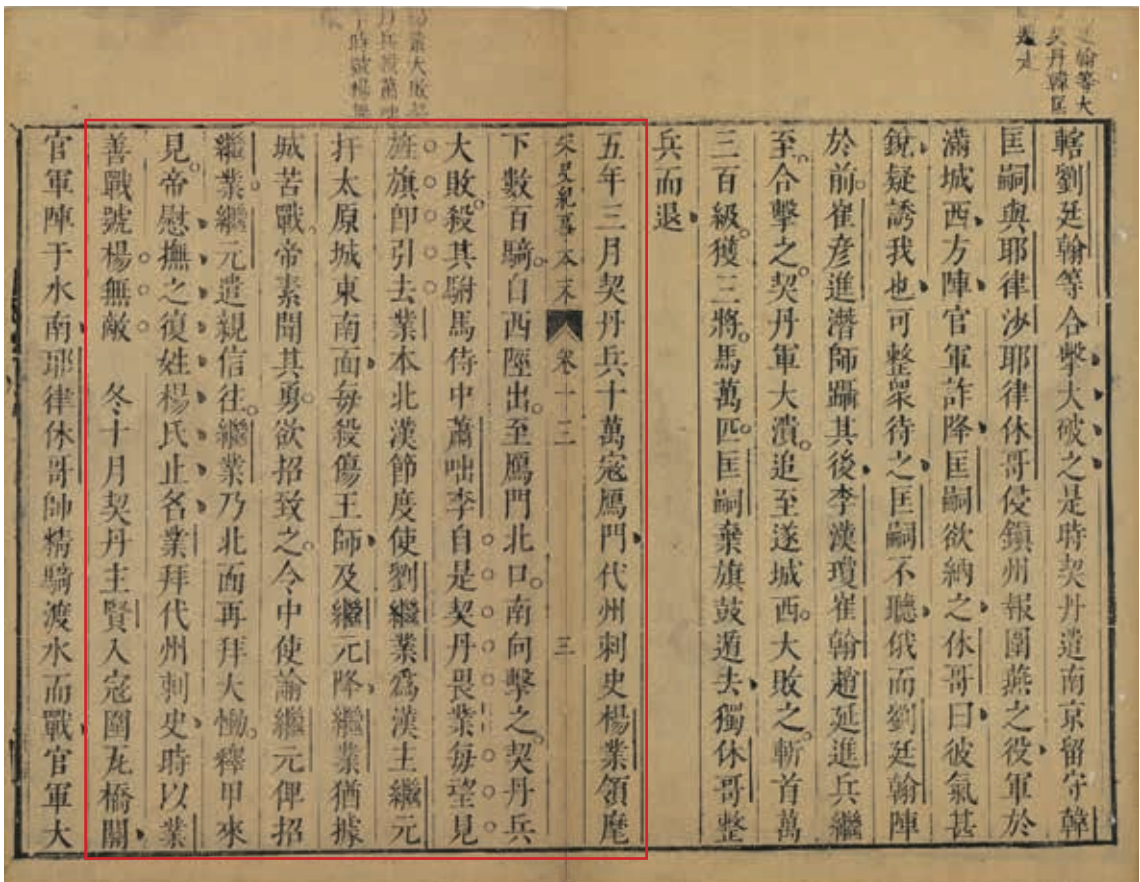 翰等大
契丹韓匡
轄劉廷翰等合擊大破之是時契丹遣南京留守韓
匡嗣與耶律沙耶律休哥侵鎮州報圍燕之役軍於
滿城西方陣官軍詐降匡嗣欲納之休哥曰彼氣甚
銳疑誘我也可整衆待之匡嗣不聽俄而劉廷翰陣
於前崔彥進潛師躡其後李漢瓊崔翰趙延進兵繼
至合擊之契丹軍大潰追至遂城西大敗之斬首萬
三百級獲三將馬萬匹匡嗣棄旗鼓遁去獨休哥整
兵而退
五年三月契丹兵十萬寇鴈門代州刺史楊業領麾
宋史紀事本末 卷十三 三
業大敗契
時號楊無
下數百騎自西陘出至鴈門北口南向擊之契丹兵
大敗殺其駙馬侍中蕭咄李自是契丹畏業每望見
旌旗卽引去業本北漢節度使劉繼業爲漢主繼元
扞太原城東南面每殺傷王師及繼元降繼業猶據
城苦戰帝素聞其勇欲招致之令中使諭繼元俾招
繼業繼元遣親信往繼業乃北面再拜大慟釋甲來
見帝慰撫之復姓楊氏止名業拜代州刺史時以業
善戰號楊無敵 冬十月契丹主賢入寇圍瓦橋關
官軍陣于水南耶律休哥帥精騎渡水而戰官軍大